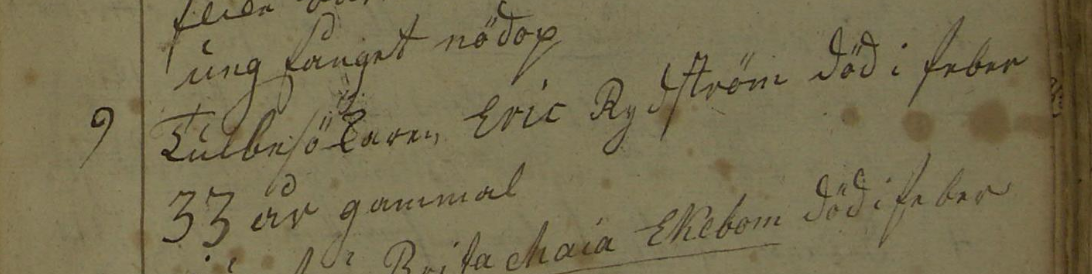 ung fånget nödop
9 Tulbesökaren Eric Rydström död i feber
33 år gammal
Brita Maia Ekebom död i feber